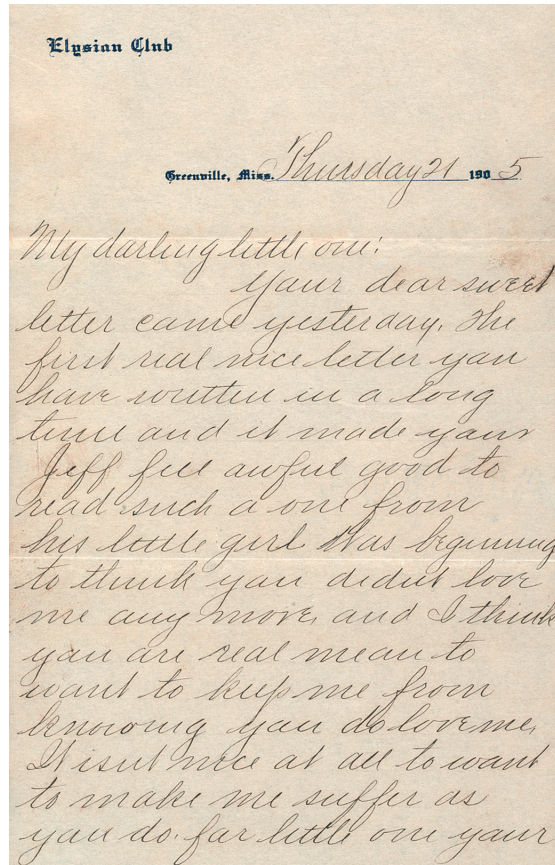 Elysian Club
Greenville, Miss. Thursday 21 1905
My darling little one:
Your dear sweet
letter came yesterday. The
first real nice letter you
have written in a long
time and it made your
Jeff feel awful good to
read such a one from
his little girl. Was beginning
to think you didnt love
me any more, and I think
you are real mean to
want to keep me from
knowing you do love me.
It isnt nice at all to want
to make me suffer as
you do. far little one your